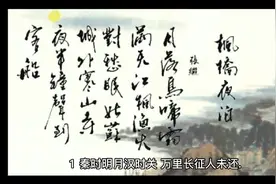 楓橋夜泊
張繼
月落烏啼霜
滿天江楓漁火
對愁眠姑蘇
城外寒山寺
夜半鐘聲到
客船
1 秦时明月汉时关 万里长征人未还.